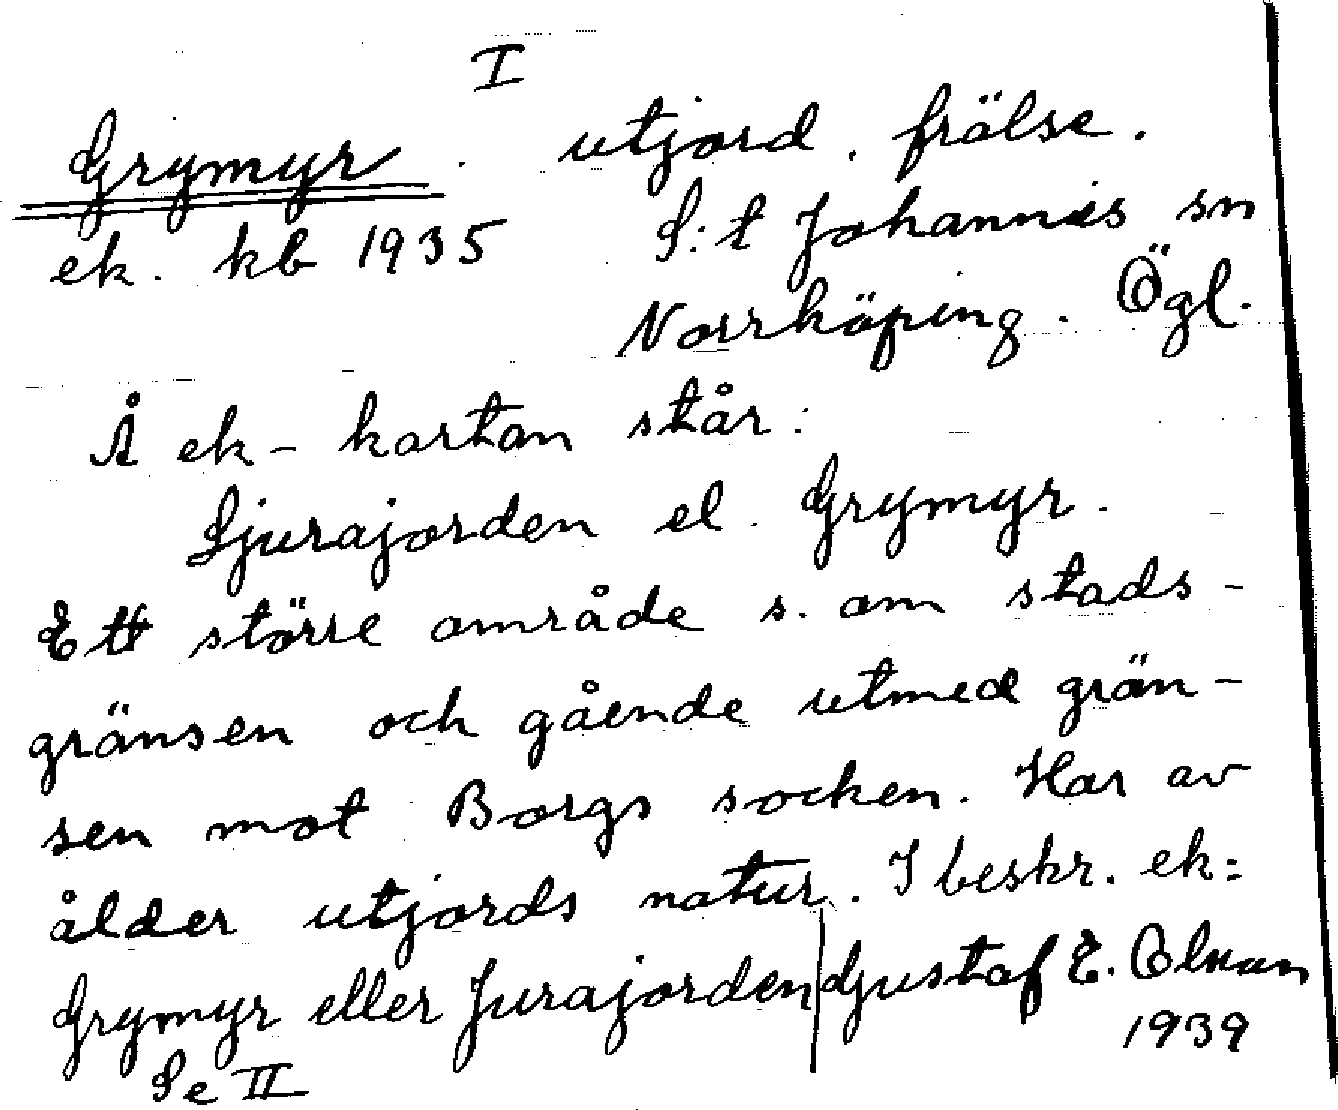 I
Grymyr. utjord. frälse.
ek. kb 1935 S:t Johannis sn
Norrköping. Ögl.
Å ek-kartan står:
Sjurajorden el. Grymyr.
Ett större område s. om stads-
gränsen och gående utmed grän-
sen mot Borgs socken. Har av
ålder utjords natur. I beskr. ek:
Grymyr eller Jurajorden Gustaf E. Olsson
1939
Se II